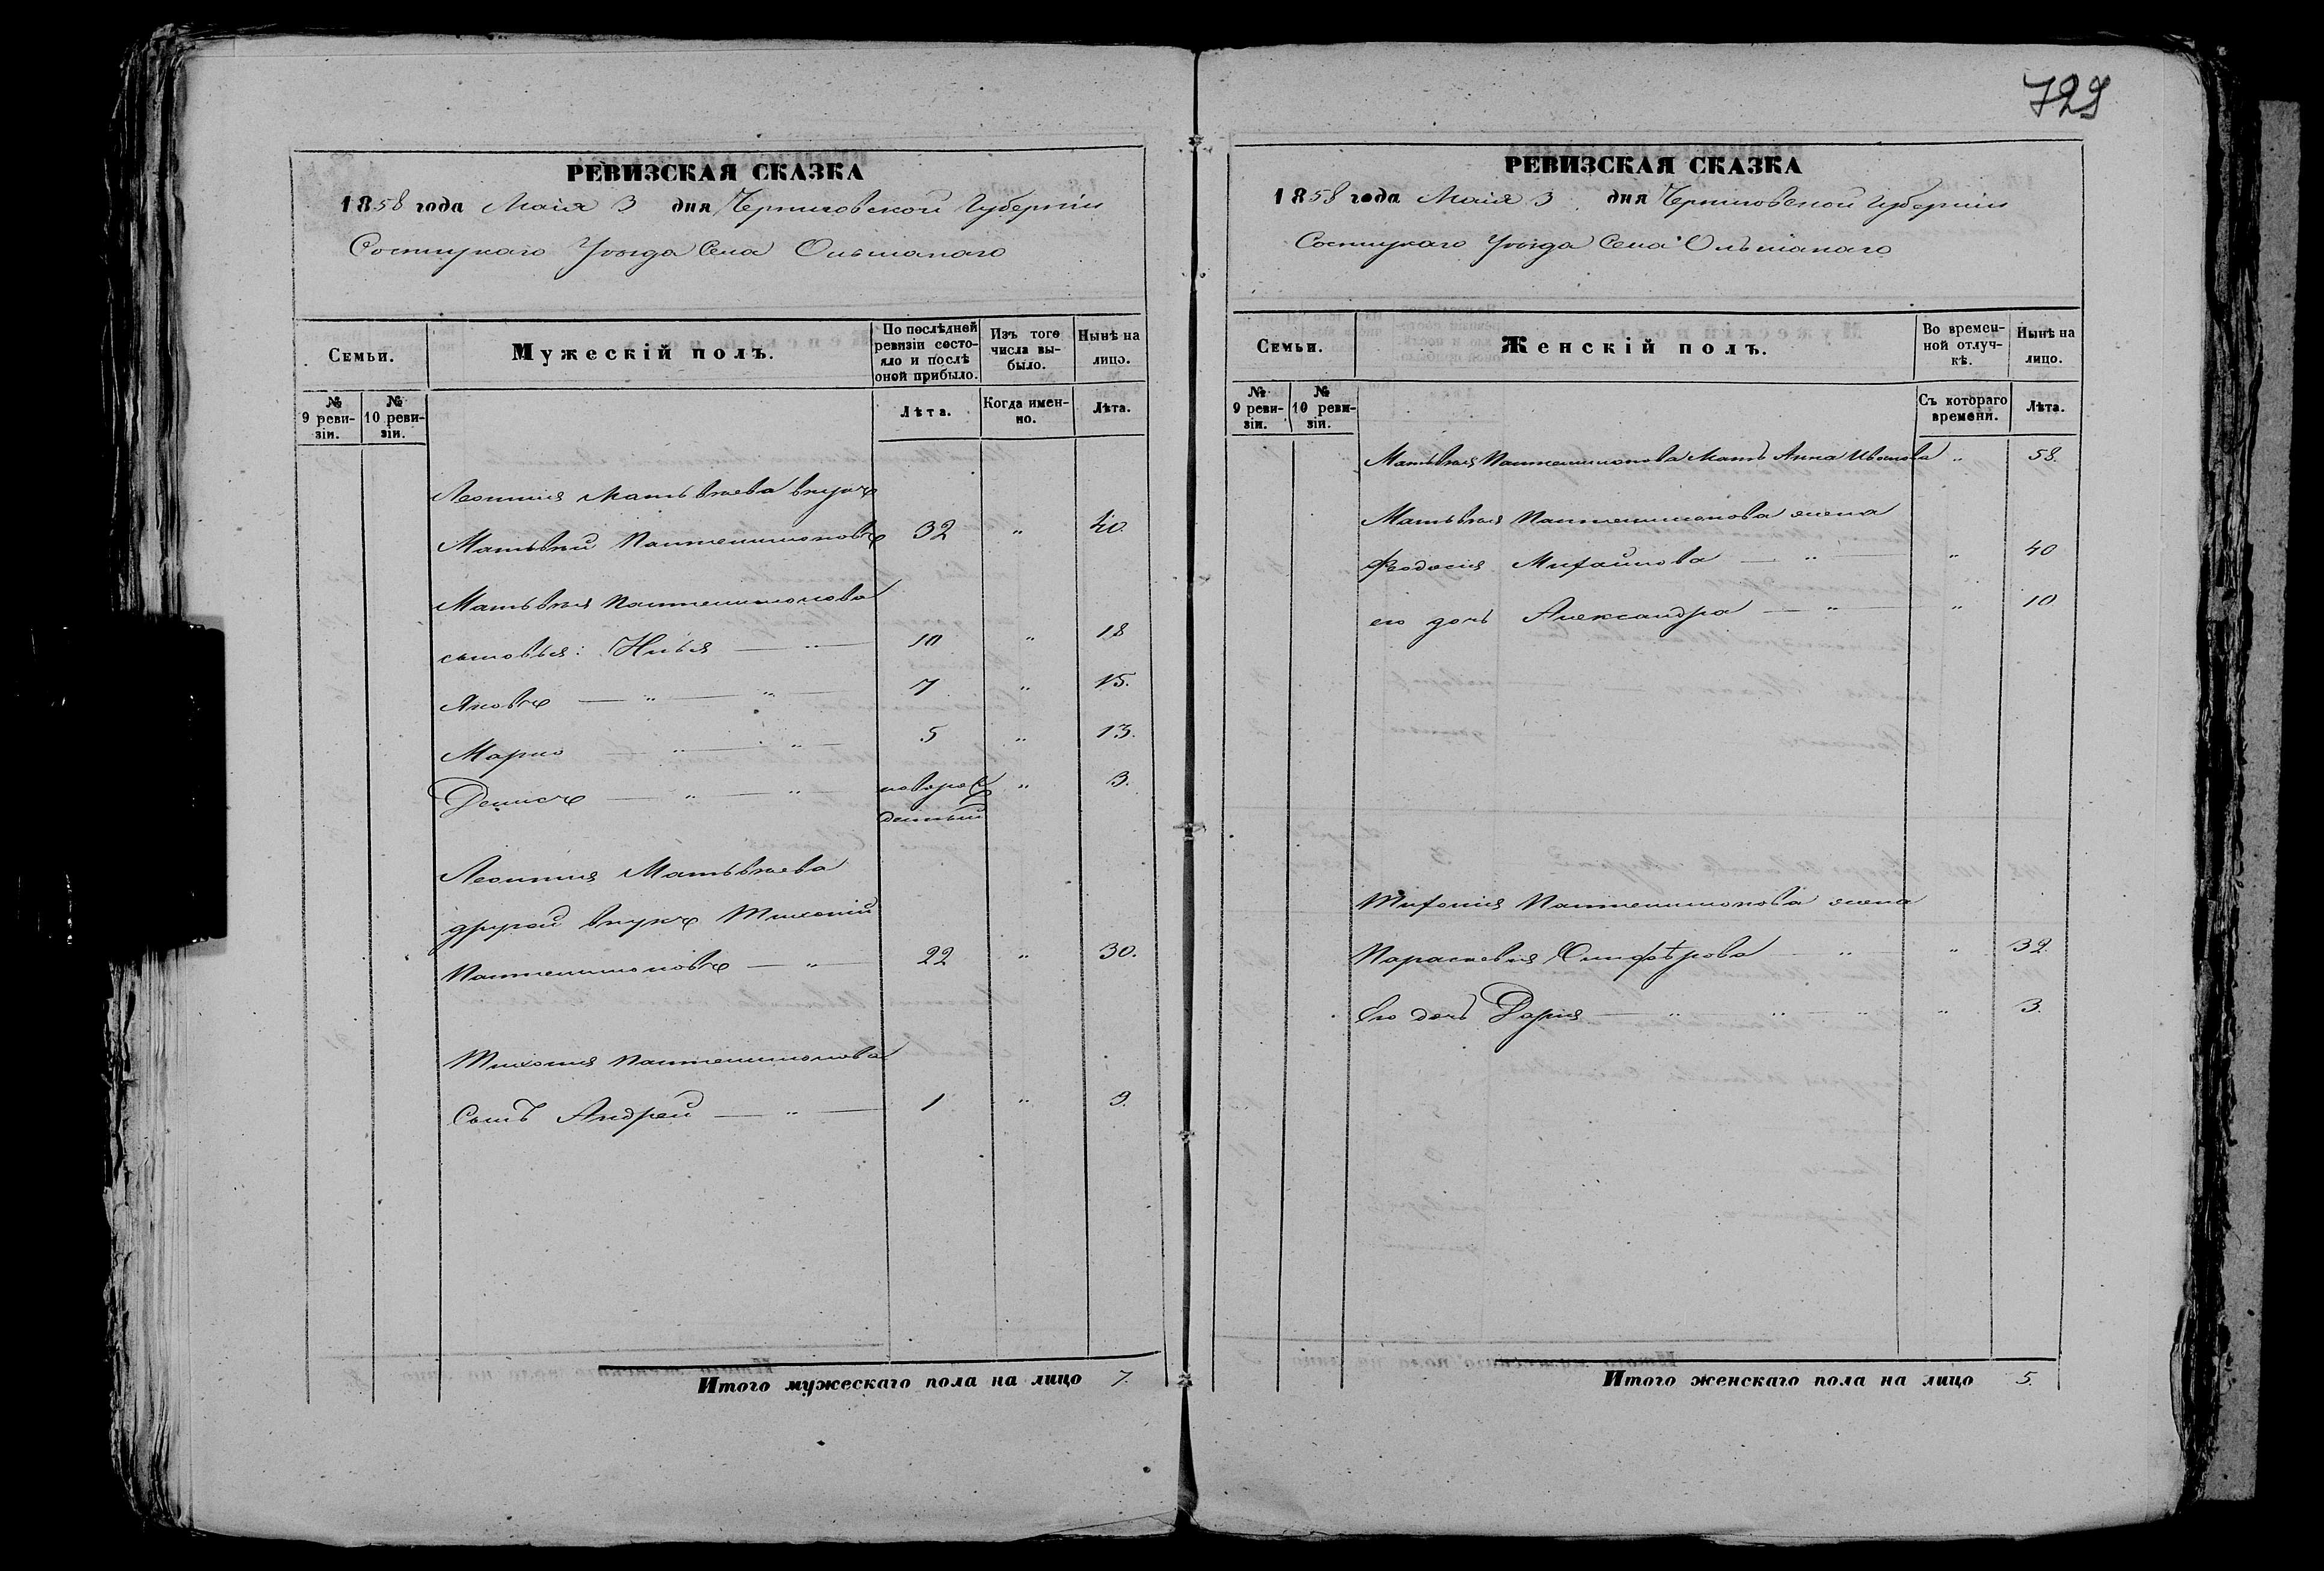 729
РЕВИЗСКАЯ СКАЗКА
1858 года Маія 3 дня Черниговской Губерніи
Сосницкаго Уѣзда Села Ольшанаго
Семьи.
Мужескій полъ.
По послѣдней ревизіи состояло и послѣ оной прибыло.
Изъ того числа выбыло.
Нынѣ на лицо.
№ 9 ревизіи.
№ 10 ревизіи.
Лѣта.
Когда именно.
Лѣта.
Леонтія Матвѣева внукъ
Матвѣй Пантелимоновъ 32 " 40.
Матвѣя Пантелимонова
сыновья: Илья — " — 10 " 18
Яковъ — " — " — 7 " 15.
Марко — " — " — 5 " 13.
Денисъ — " — " — новорож " 3.
денный
Леонтія Матвѣева
другой внукъ Тихоній
Пантелимоновъ — " — 22 " 30.
Тихонія Пантелимонова
Сынъ Андрей — " — 1 " 9.
Итого мужескаго пола на лицо 7.
РЕВИЗСКАЯ СКАЗКА
1858 года Маія 3 дня Черниговской Губерніи
Сосницкаго Уѣзда Села Ольшанаго
Семьи.
Женскій полъ.
Во временной отлучкѣ.
Нынѣ на лицо.
№ 9 ревизіи.
№ 10 ревизіи.
Съ котораго времени.
Лѣта.
Матвѣя Пантелимонова Мать Анна Иванова " 58.
Матвѣя Пантелимонова жена
Феодосія Михайлова — " — " 40
его дочь Александра — " — " 10
Тихонія Пантелимонова жена
Параскевія Олифѣрова — " — " 32.
Его дочь Дарія — " — " — " — " 3.
Итого женскаго пола на лицо 5.